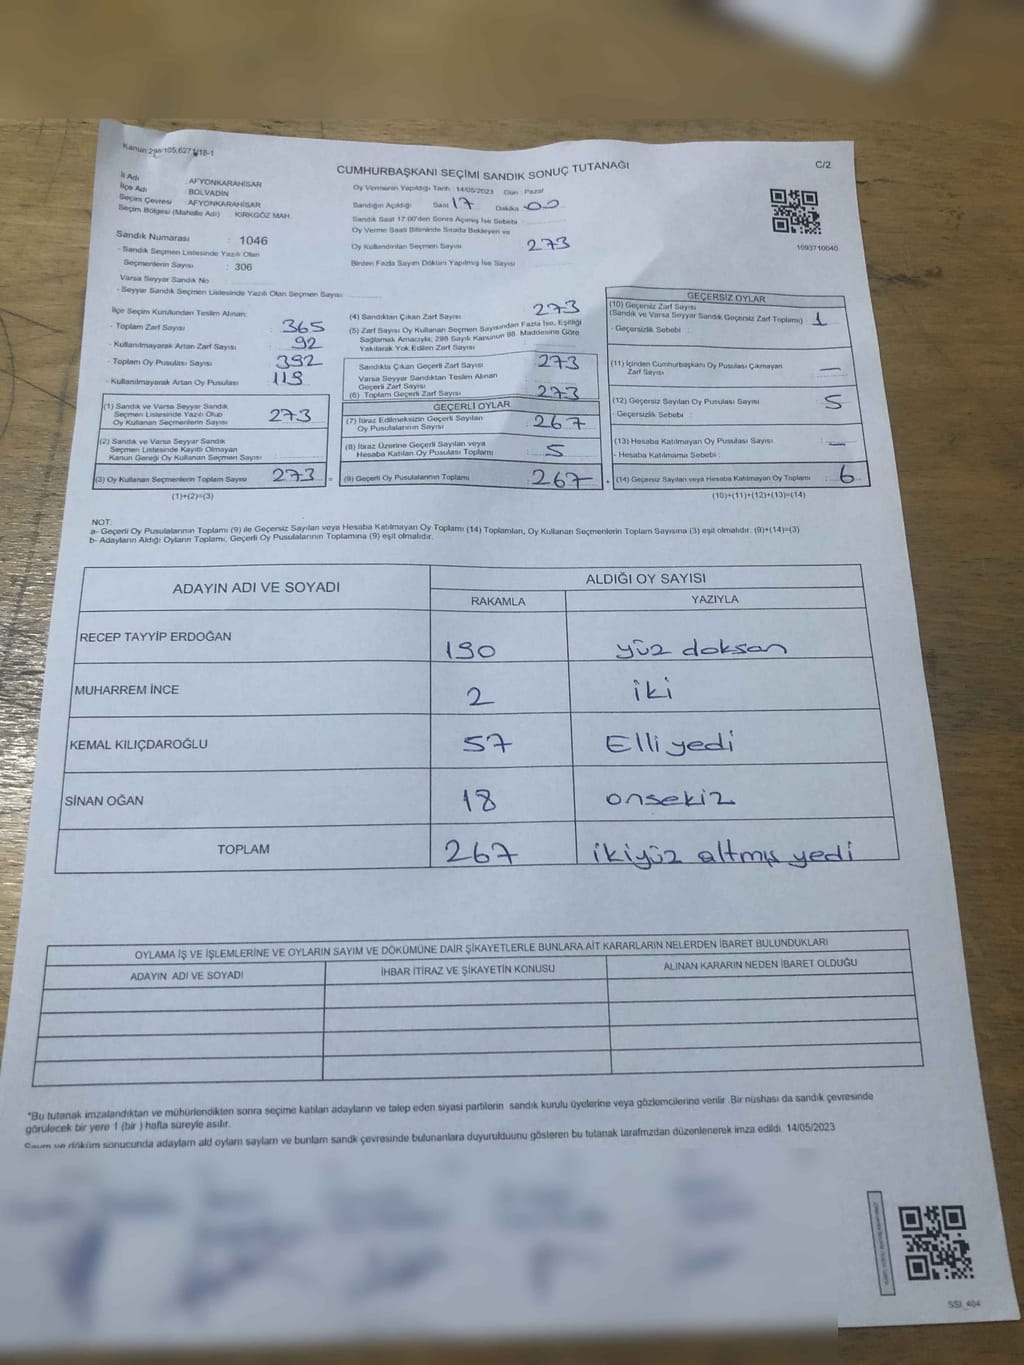 Kanun 298/105,6271/18-1
CUMHURBAŞKANI SEÇİMİ SANDIK SONUÇ TUTANAĞI
C/2
İl Adı : AFYONKARAHİSAR
İlçe Adı : BOLVADİN
Seçim Çevresi : AFYONKARAHİSAR
Seçim Bölgesi (Mahalle Adı) KIRKGÖZ MAH.
Sandık Numarası : 1046
- Sandık Seçmen Listesinde Yazılı Olan
Seçmenlerin Sayısı : 306
Varsa Seyyar Sandık No
- Seyyar Sandık Seçmen Listesinde Yazılı Olan Seçmen Sayısı:
Oy Vermenin Yapıldığı Tarih : 14/05/2023 Gün : Pazar
Sandığın Açıldığı Saat 17 Dakika 00
Sandık Saat 17:00'den Sonra Açılmış İse Sebebi
Oy Verme Saati Bitiminde Sırada Bekleyen ve
Oy Kullandırılan Seçmen Sayısı 273
Birden Fazla Sayım Döküm Yapılmış İse Sayısı
1093710040
İlçe Seçim Kurulundan Teslim Alınan:
- Toplam Zarf Sayısı : 365
- Kullanılmayarak Artan Zarf Sayısı : 92
- Toplam Oy Pusulası Sayısı : 392
- Kullanılmayarak Artan Oy Pusulası : 119
(1) Sandık ve Varsa Seyyar Sandık
Seçmen Listesinde Yazılı Olup
Oy Kullanan Seçmenlerin Sayısı : 273
(2) Sandık ve Varsa Seyyar Sandık
Seçmen Listesinde Kayıtlı Olmayan
Kanun Gereği Oy Kullanan Seçmen Sayısı
(3) Oy Kullanan Seçmenlerin Toplam Sayısı : 273
(1)+(2)=(3)
(4) Sandıktan Çıkan Zarf Sayısı 273
(5) Zarf Sayısı Oy Kullanan Seçmen Sayısından Fazla İse, Eşitliği
Sağlamak Amacıyla; 298 Sayılı Kanunun 98. Maddesine Göre
Yakılarak Yok Edilen Zarf Sayısı
Sandıkta Çıkan Geçerli Zarf Sayısı 273
Varsa Seyyar Sandıktan Teslim Alınan
Geçerli Zarf Sayısı
(6) Toplam Geçerli Zarf Sayısı 273
GEÇERLİ OYLAR
(7) İtiraz Edilmeksizin Geçerli Sayılan
Oy Pusulalarının Sayısı 267
(8) İtiraz Üzerine Geçerli Sayılan veya
Hesaba Katılan Oy Pusulası Toplamı 5
(9) Geçerli Oy Pusulalarının Toplamı : 267
GEÇERSİZ OYLAR
(10) Geçersiz Zarf Sayısı
(Sandık ve Varsa Seyyar Sandık Geçersiz Zarf Toplamı) : 1
- Geçersizlik Sebebi :
(11) İçinden Cumhurbaşkanı Oy Pusulası Çıkmayan
Zarf Sayısı : —
(12) Geçersiz Sayılan Oy Pusulası Sayısı : 5
- Geçersizlik Sebebi :
(13) Hesaba Katılmayan Oy Pusulası Sayısı : —
- Hesaba Katılmama Sebebi :
(14) Geçersiz Sayılan veya Hesaba Katılmayan Oy Toplamı : 6
(10)+(11)+(12)+(13)=(14)
NOT:
a- Geçerli Oy Pusulalarının Toplamı (9) ile Geçersiz Sayılan veya Hesaba Katılmayan Oy Toplamı (14) Toplamları, Oy Kullanan Seçmenlerin Toplam Sayısına (3) eşit olmalıdır. (9)+(14)=(3)
b- Adayların Aldığı Oyların Toplamı, Geçerli Oy Pusulalarının Toplamına (9) eşit olmalıdır.
ADAYIN ADI VE SOYADI
ALDIĞI OY SAYISI
RAKAMLA YAZIYLA
RECEP TAYYİP ERDOĞAN 190 yüz doksan
MUHARREM İNCE 2 iki
KEMAL KILIÇDAROĞLU 57 Elli yedi
SİNAN OĞAN 18 onsekiz
TOPLAM 267 ikiyüz altmış yedi
OYLAMA İŞ VE İŞLEMLERİNE VE OYLARIN SAYIM VE DÖKÜMÜNE DAİR ŞİKAYETLERLE BUNLARA AİT KARARLARIN NELERDEN İBARET BULUNDUKLARI
ADAYIN ADI VE SOYADI İHBAR İTİRAZ VE ŞİKAYETİN KONUSU ALINAN KARARIN NEDEN İBARET OLDUĞU
*Bu tutanak imzalandıktan ve mühürlendikten sonra seçime katılan adayların ve talep eden siyasi partilerin sandık kurulu üyelerine veya gözlemcilerine verilir. Bir nüshası da sandık çevresinde
görülecek bir yere 1 (bir) hafta süreyle asılır.
Sayım ve döküm sonucunda adaylarn ald oylarn saylarn ve bunlarn sandk çevresinde bulunanlara duyurulduunu gösteren bu tutanak tarafmzdan düzenlenerek imza edildi. 14/05/2023
SSI_404